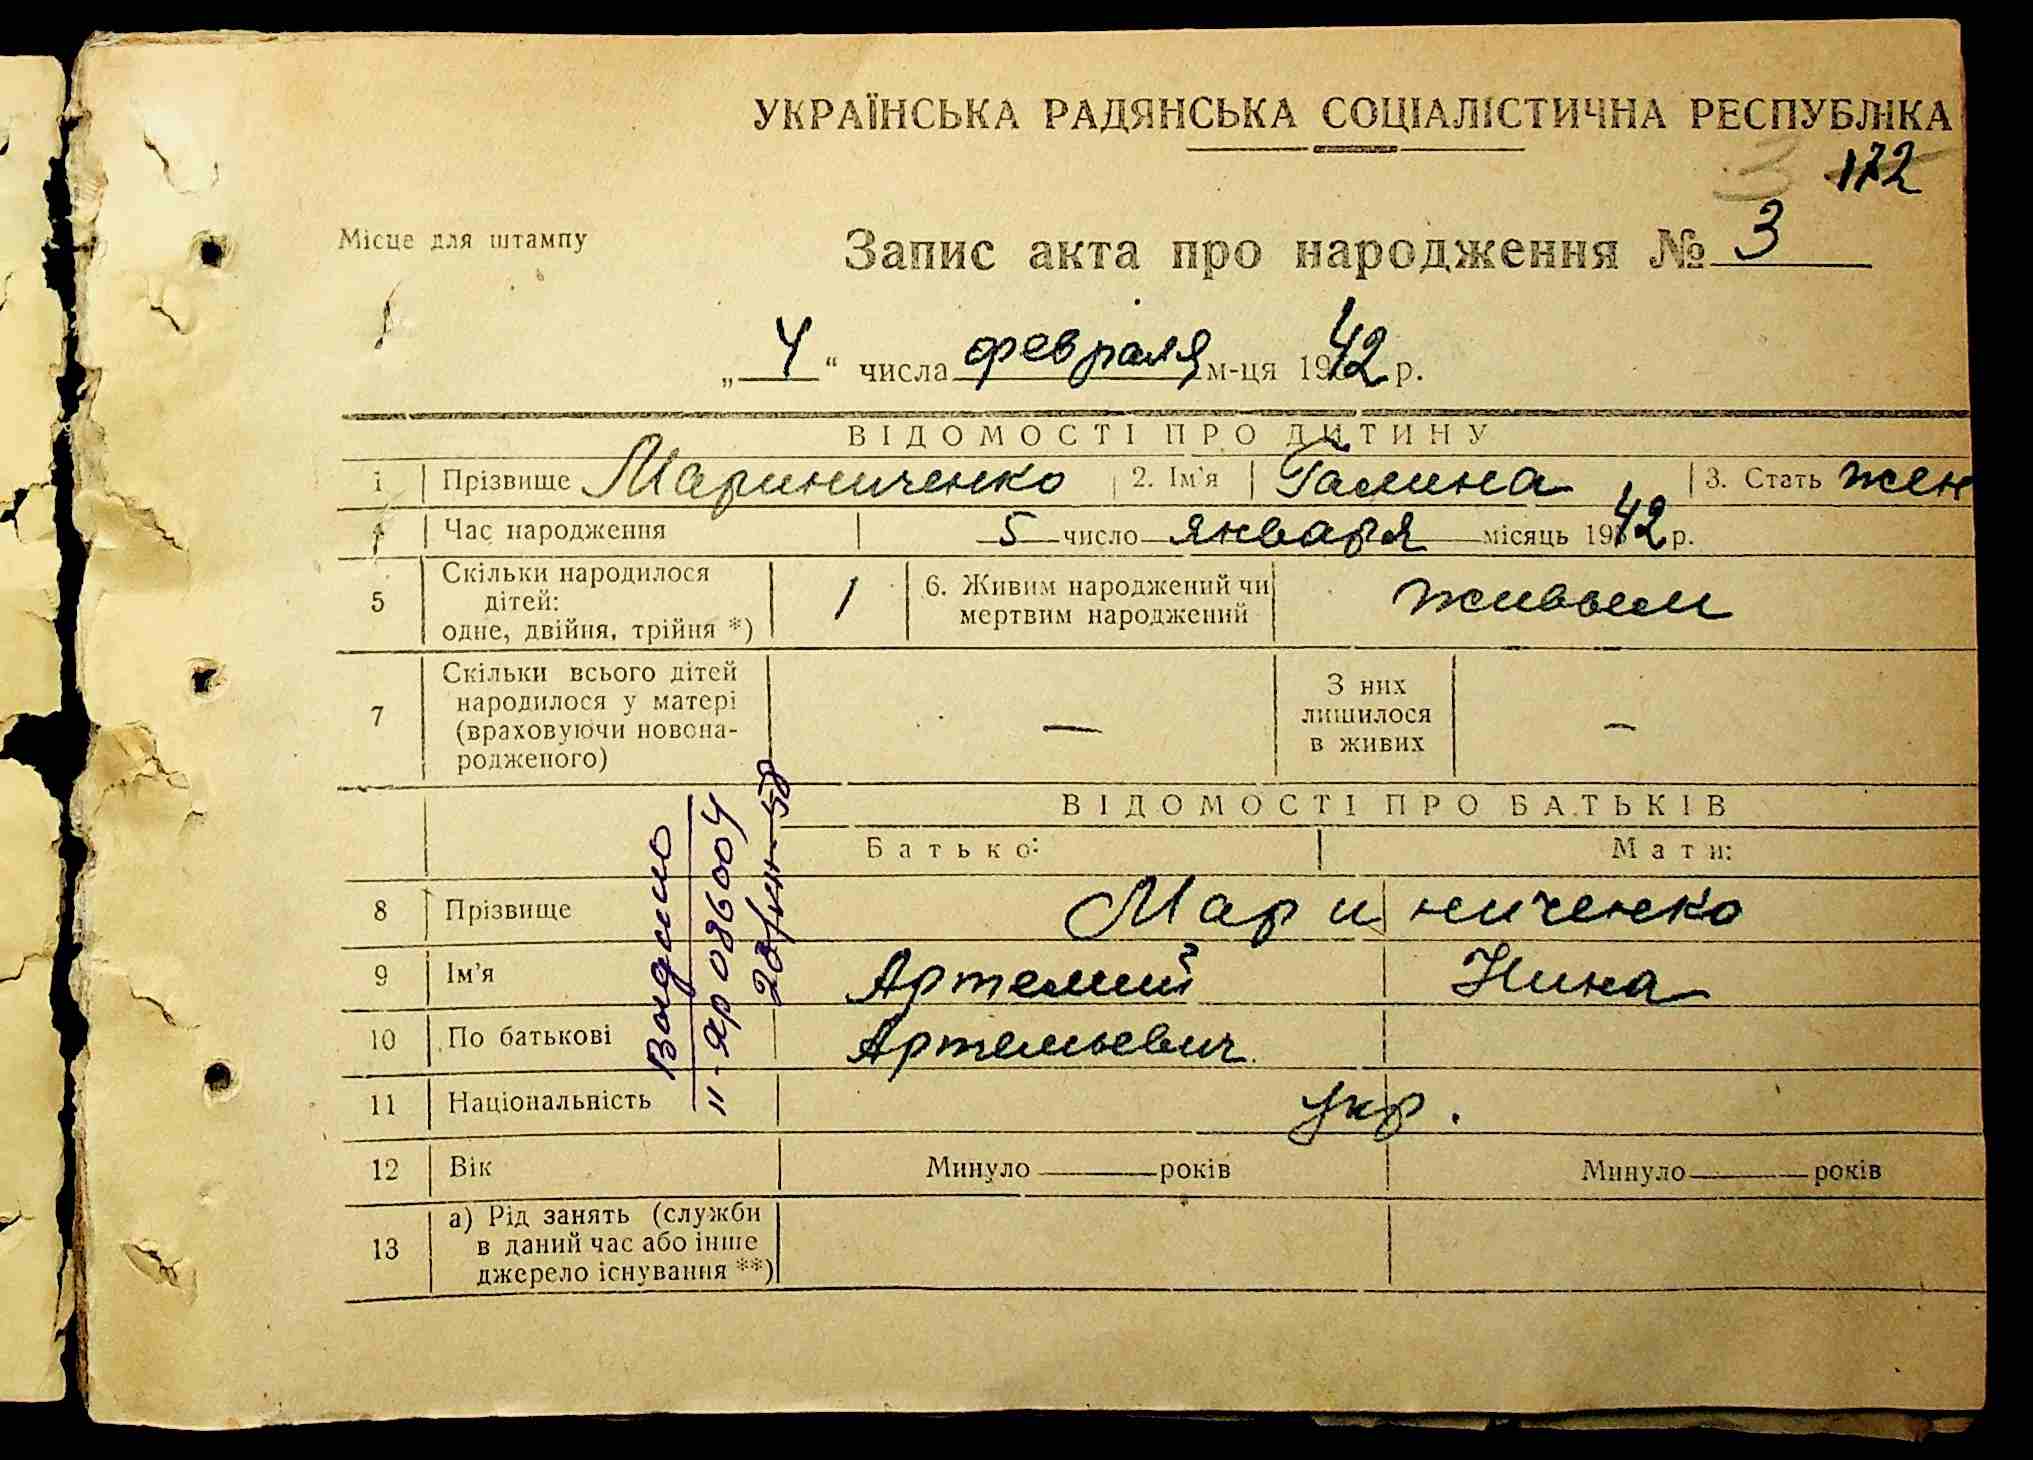 УКРАЇНСЬКА РАДЯНСЬКА СОЦІАЛІСТИЧНА РЕСПУБЛІКА
3 172
Місце для штампу
Запис акта про народження № 3
„ 4 “ числа февраля м-ця 1942 р.
ВІДОМОСТІ ПРО ДИТИНУ
1 Прізвище Мариниченко 2. Ім’я Галина 3. Стать жен
4 Час народження 5 число января місяць 1942 р.
5 Скільки народилося дітей: одне, двійня, трійня *) 1 6. Живим народжений чи мертвим народжений живым
7 Скільки всього дітей народилося у матері (враховуючи новонародженого) — З них лишилося в живих —
ВІДОМОСТІ ПРО БАТЬКІВ
Батько: Мати:
8 Прізвище Мариниченко
9 Ім’я Артемий Нина
10 По батькові Артемьевич
11 Національність укр.
12 Вік Минуло років Минуло років
13 а) Рід занять (служби в даний час або інше джерело існування **)
II-ЯР 086004